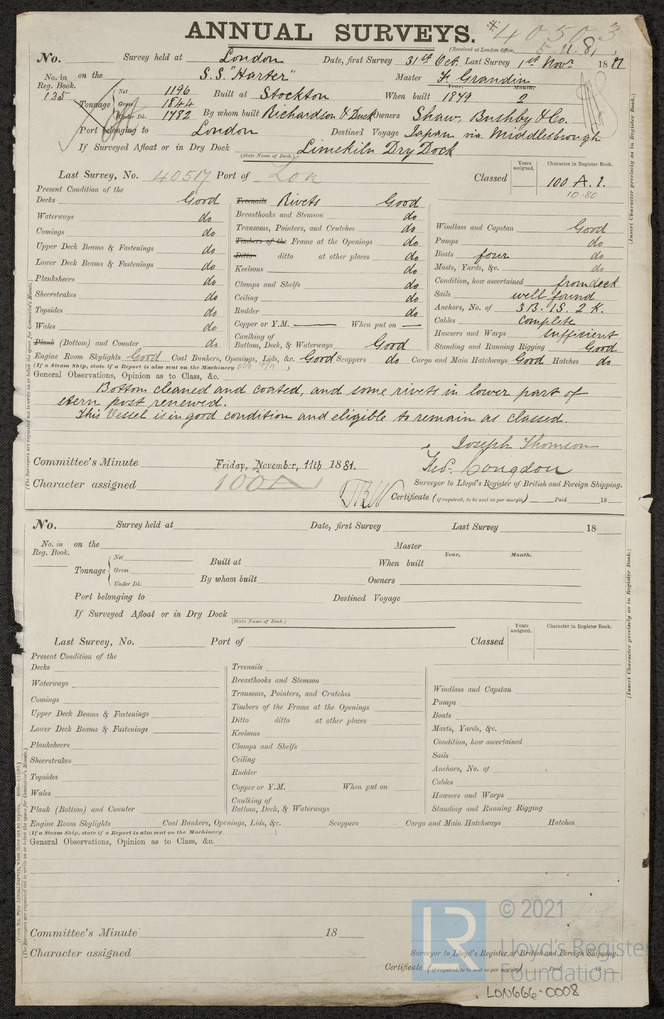 ANNUAL SURVEYS.
* 40503
(Received at London Office, 5.11.81
No. Survey held at London Date, first Survey 31st Oct. Last Survey 1st Novr 18
No. in Reg. Book. 135 on the S.S. "Harter" Master F. Grandin
Tonnage Net 1196 Built at Stockton When built Year. 1879 Month. 2
Gross 1844
Under Dk. 1782 By whom built Richardson & Duck Owners Shaw, Bushby & Co.
Port belonging to London Destined Voyage Japan via Middlesbrough
If Surveyed Afloat or in Dry Dock Limekiln Dry Dock
(State Name of Dock.)
Last Survey, No. 40517 Port of Lon Classed Years assigned. Character in Register Book. 100 A.1.
10.80
Present Condition of the
Decks Good Treenails Rivets Good
Waterways do Breasthooks and Stemson do
Comings do Transoms, Pointers, and Crutches do Windlass and Capstan Good
Upper Deck Beams & Fastenings do Timbers of the Frame at the Openings do Pumps do
Lower Deck Beams & Fastenings do Ditto ditto at other places do Boats four do
Planksheers do Keelsons do Masts, Yards, &c. do
Sheerstrakes do Clamps and Shelfs do Condition, how ascertained from deck
Topsides do Ceiling do Sails well found
Wales do Rudder do Anchors, No. of 3 B. 1 S. 2 K.
Plank (Bottom) and Counter do Copper or Y.M. When put on Cables Complete
Caulking of Bottom, Deck, & Waterways Good Hawsers and Warps Sufficient
Standing and Running Rigging Good
Engine Room Skylights Good Coal Bunkers, Openings, Lids, &c. Good Scuppers do Cargo and Main Hatchways Good Hatches do
(If a Steam Ship, state if a Report is also sent on the Machinery
General Observations, Opinion as to Class, &c.
Bottom cleaned and coated, and some rivets in lower part of
stern post renewed.
This Vessel is in good condition and eligible to remain as classed.
Joseph Thomson
Committee's Minute Friday, November, 11th 1881. Theo. Congdon
Character assigned 100A Surveyor to Lloyd's Register of British and Foreign Shipping.
Certificate (if required, to be sent as per margin) Paid 18
(Insert Character precisely as in Register Book.)
No. Survey held at Date, first Survey Last Survey 18
No. in Reg. Book. on the Master
Tonnage Net Built at When built Year. Month.
Gross
Under Dk. By whom built Owners
Port belonging to Destined Voyage
If Surveyed Afloat or in Dry Dock
(State Name of Dock.)
Last Survey, No. Port of Classed Years assigned. Character in Register Book.
Present Condition of the
Decks Treenails
Waterways Breasthooks and Stemson
Comings Transoms, Pointers, and Crutches Windlass and Capstan
Upper Deck Beams & Fastenings Timbers of the Frame at the Openings Pumps
Lower Deck Beams & Fastenings Ditto ditto at other places Boats
Planksheers Keelsons Masts, Yards, &c.
Sheerstrakes Clamps and Shelfs Condition, how ascertained
Topsides Ceiling Sails
Wales Rudder Anchors, No. of
Plank (Bottom) and Counter Copper or Y.M. When put on Cables
Caulking of Bottom, Deck, & Waterways Hawsers and Warps
Standing and Running Rigging
Engine Room Skylights Coal Bunkers, Openings, Lids, &c. Scuppers Cargo and Main Hatchways Hatches
(If a Steam Ship, state if a Report is also sent on the Machinery
General Observations, Opinion as to Class, &c.
(Insert Character precisely as in Register Book.)
Committee's Minute 18
Character assigned Surveyor to Lloyd's Register of British and Foreign Shipping.
Certificate (if required, to be sent as per margin) Paid 18
LR
© 2021
Lloyd's Register
Foundation
LON666-0008